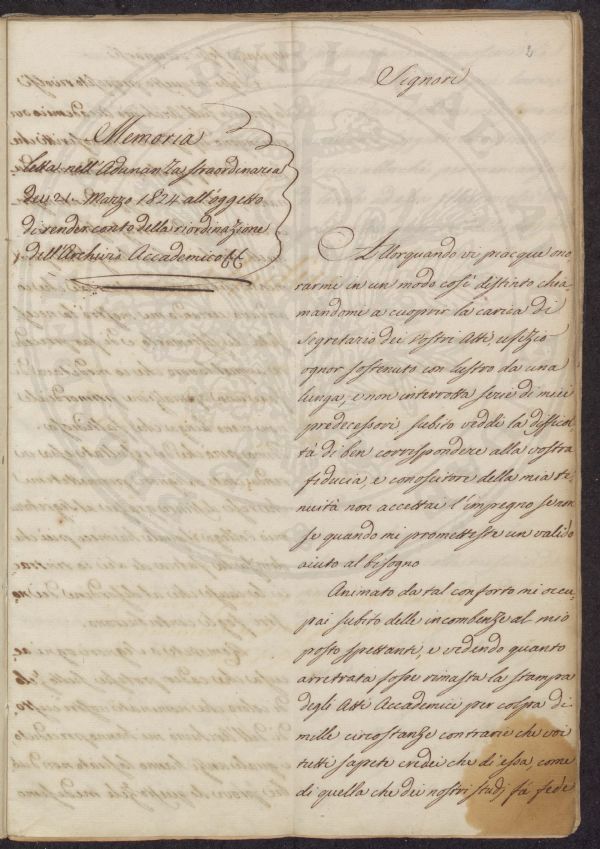 2
Signori
Memoria
letta nell'Adunanza straordinaria
dei 21. Marzo 1824 all'oggetto
di render conto della riordinazione
dell'Archivio Accademico
Allorquando vi piacque ono
rarmi in un modo così distinto chia
mandomi a cuoprir la carica di
Segretario dei vostri Atti, ufizio
ognor sostenuto con lustro da una
lunga, e non interrotta serie di miei
predecessori subito veddi la difficol
tà di ben corrispondere alla vostra
fiducia, e conoscitore della mia te,
nuità non accettai l'impegno se non
se quando mi prometteste un valido
aiuto al bisogno
Animato da tal conforto mi occu,
pai subito delle incombenze al mio
posto spettanti, e vedendo quanto
arretrata fosse rimasta la stampa
degli Atti Accademici per colpa di
mille circostanze contrarie che voi
tutti sapete credei che d'essa come
di quella che dei nostri studj fà fede